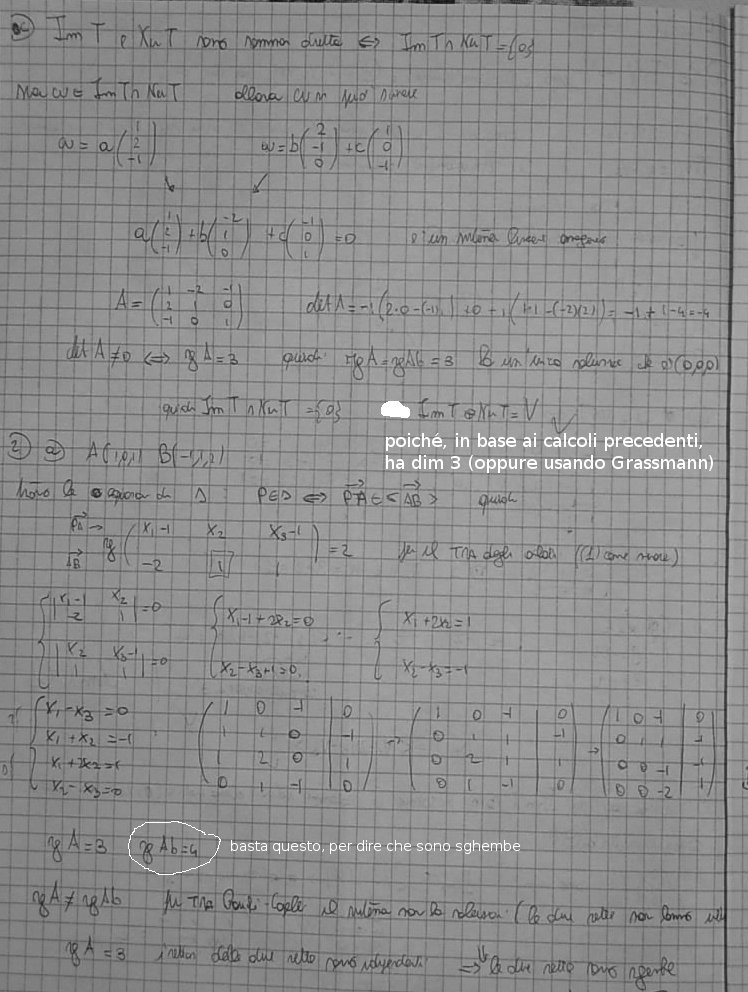 Im T e Ker T sono somma diretta ⇔ Im T ∩ Ker T = {0}
Sia w ∈ Im T ∩ Ker T allora w si può scrivere
w = a(1 2 -1) w = b(2 -1 0) + c(1 0 -1)
a(1 2 -1) + b(-2 1 0) + c(-1 0 1) = 0 è un sistema lineare omogeneo
A = (1 -2 -1 / 2 1 0 / -1 0 1) det A = -1(2·0-(-1)·1) + 0 + 1(1·1-(-2)(2)) =
det A ≠ 0 ⇔ rg A = 3 quindi rg A = rg Ab = 3 (0,0,0)
quindi Im T ∩ Ker T = {0} Im T ⊕ Ker T = V
poiché, in base ai calcoli precedenti,
ha dim 3 (oppure usando Grassmann)
2 a) A(1,0,1) B(-1,1,2)
P∈ ⇔ PA ∈ <AB> quindi
PA → rg (x1-1 x2 x3-1
AB -2 1 1) = 2 per il TMA degli orlati ((1) come minore)
{|x1-1 x2 / -2 1| = 0 {x1-1+2x2=0 ... {x1+2x2=1
|x2 x3-1 / 1 1| = 0 x2-x3+1=0 x2-x3=-1
{x1-x3=0 (1 0 -1 | 0) → (1 0 -1 | 0) → (1 0 -1 | 0)
x1+x2=-1 (1 1 0 | -1) (0 1 1 | -1) (0 1 1 | -1)
x1+2x2=1 (1 2 0 | 1) (0 2 1 | 1)
x2-x3=0 (0 1 -1 | 0) (0 1 -1 | 0) (0 0 -2 | 1)
rg A = 3 rg Ab = 4 basta questo, per dire che sono sghembe
rg A ≠ rg Ab per TMA il sistema non ha soluzioni (le due rette non sono
rg A = 3 i vettori delle due rette sono indipendenti ⇒ le due rette sono sgembe